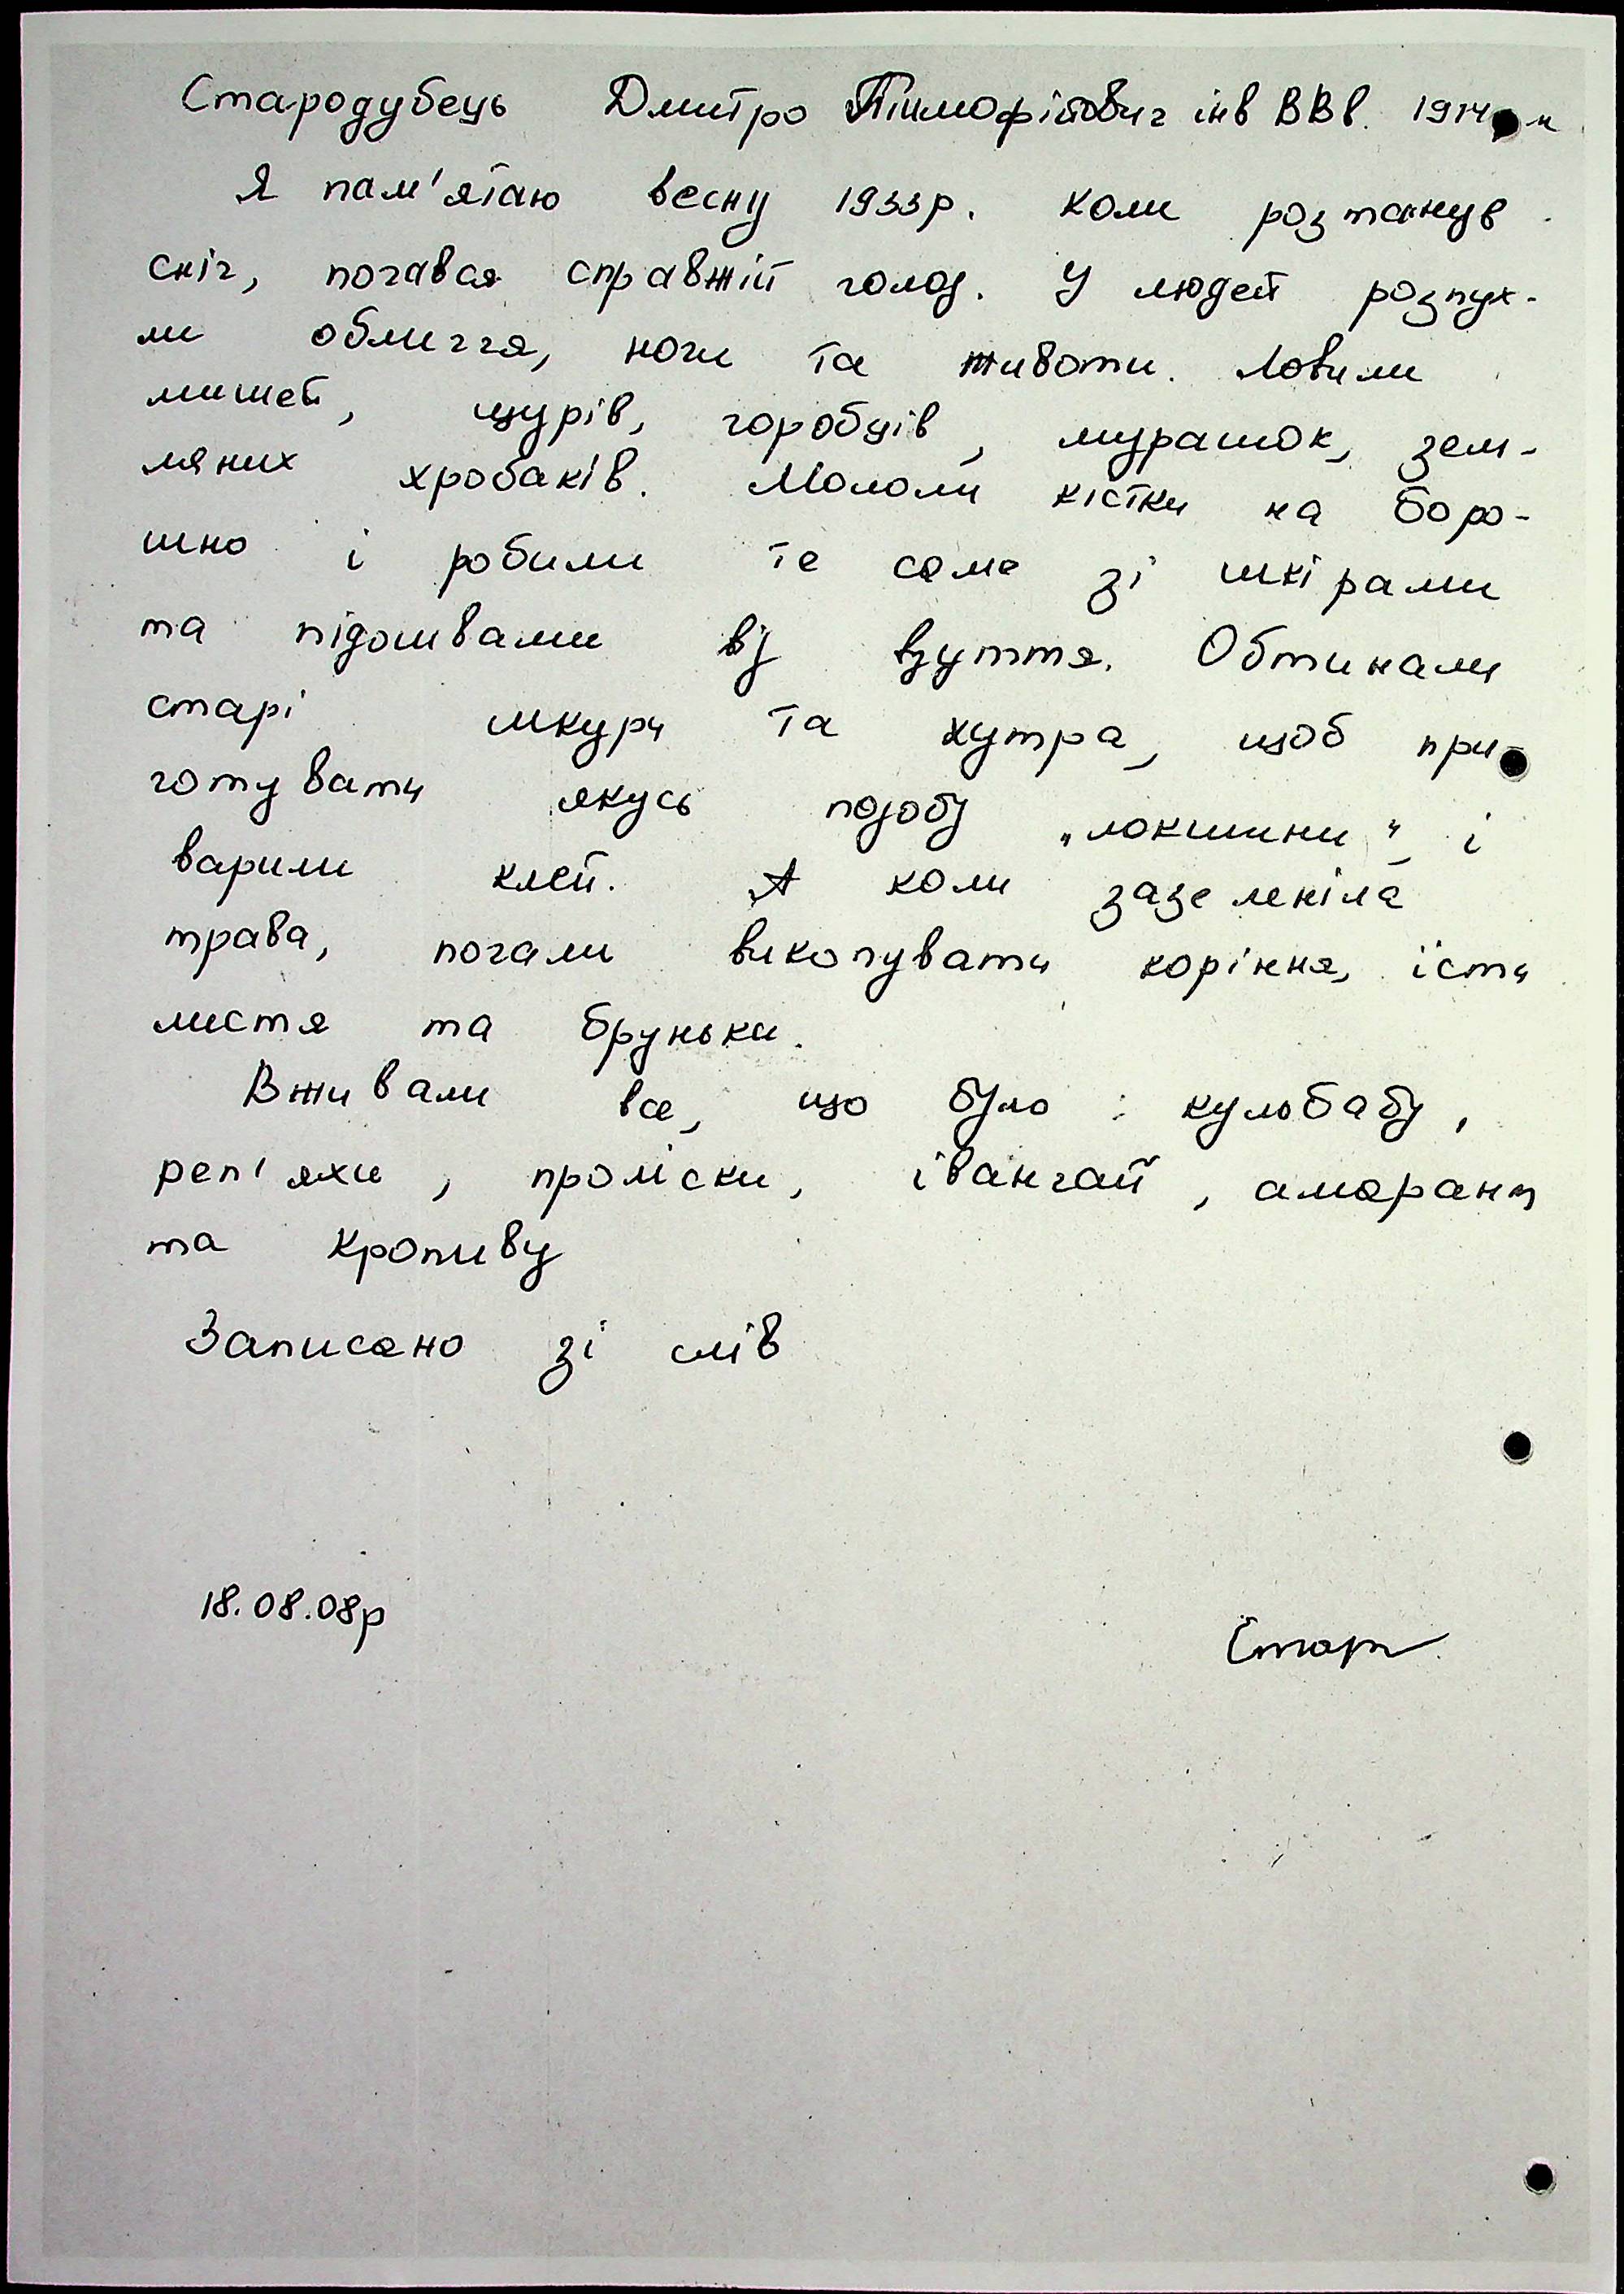 Стародубець Дмитро Тимофійович інв ВВв. 1914 н
Я пам'ятаю весну 1933р. коли розтанув
сніг, почався справжій голод. У людей розпух-
ли обличчя, ноги та животи. Ловили
мишей, щурів, горобців, мурашок, зем-
ляних хробаків. Мололи кістки на боро-
шно і робили те саме зі шкірами
та підошвами від взуття. Обтинали
старі шкури та хутра, щоб при-
готувати якусь подобу „локшини" і
варили клей. А коли зазеленіла
трава, почали викопувати коріння, їсти
листя та бруньки.
Вживали все, що було: кульбабу,
реп'яхи, проліски, іванчай, амарант
та кропиву
Записано зі слів
18.08.08р
Стар